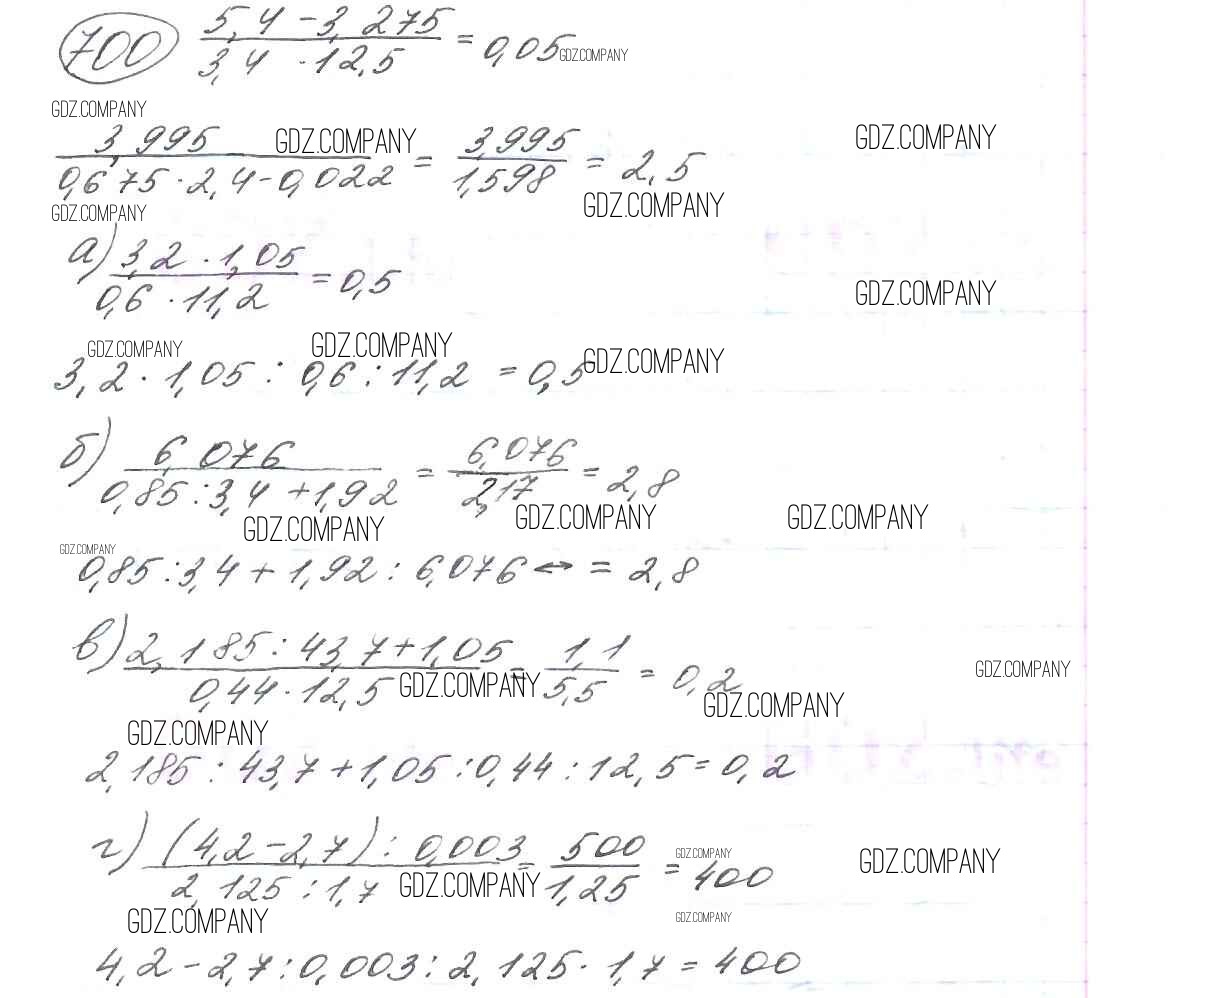 700 (5,4 - 3,275) / (3,4 · 12,5) = 0,05 GDZ.COMPANY
GDZ.COMPANY
3,995 / (0,675 · 2,4 - 0,022) = 3,995 / 1,598 = 2,5 GDZ.COMPANY GDZ.COMPANY
GDZ.COMPANY GDZ.COMPANY
а) (3,2 · 1,05) / (0,6 · 11,2) = 0,5 GDZ.COMPANY
GDZ.COMPANY GDZ.COMPANY GDZ.COMPANY
3,2 · 1,05 : 0,6 : 11,2 = 0,5
б) 6,076 / (0,85 : 3,4 + 1,92) = 6,076 / 2,17 = 2,8
GDZ.COMPANY GDZ.COMPANY GDZ.COMPANY
GDZ.COMPANY
0,85 : 3,4 + 1,92 : 6,076 ↔ = 2,8
в) (2,185 : 43,7 + 1,05) / (0,44 · 12,5) = 1,1 / 5,5 = 0,2 GDZ.COMPANY GDZ.COMPANY GDZ.COMPANY
GDZ.COMPANY
2,185 : 43,7 + 1,05 : 0,44 : 12,5 = 0,2
г) ((4,2 - 2,7) : 0,003) / (2,125 : 1,7) = 500 / 1,25 = 400 GDZ.COMPANY GDZ.COMPANY GDZ.COMPANY
GDZ.COMPANY GDZ.COMPANY
4,2 - 2,7 : 0,003 : 2,125 · 1,7 = 400